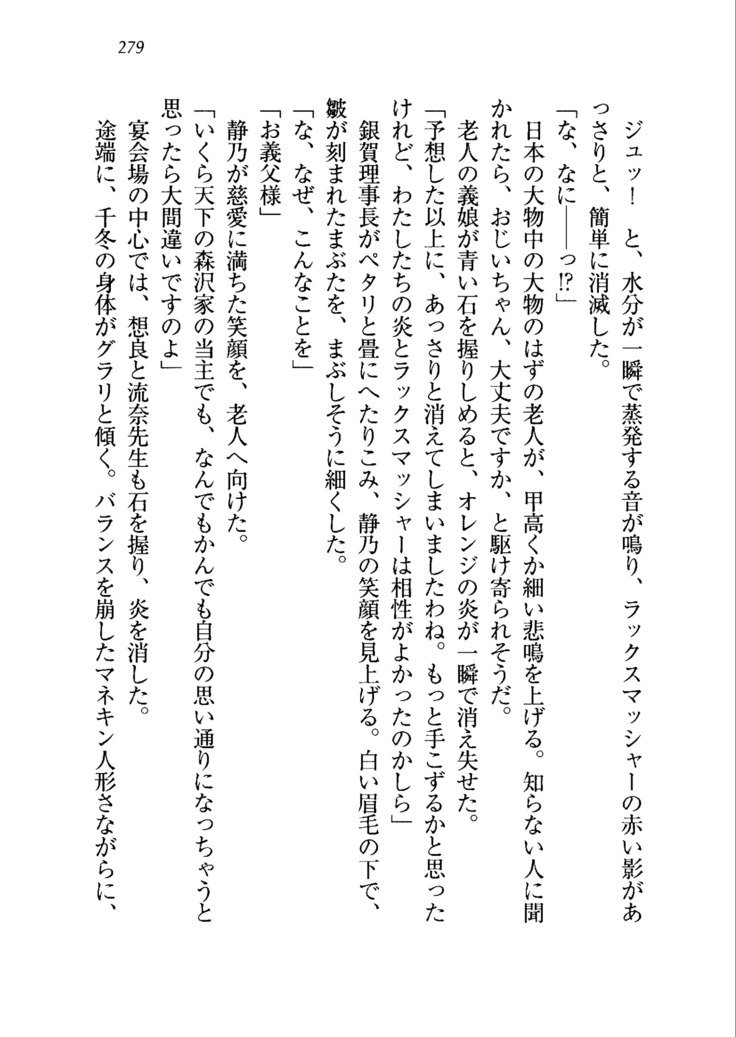 279
ジュッ！　と、水分が一瞬で蒸発する音が鳴り、ラックスマッシャーの赤い影があ
っさりと、簡単に消滅した。
「な、なに――っ!?」
日本の大物中の大物のはずの老人が、甲高くか細い悲鳴を上げる。知らない人に聞
かれたら、おじいちゃん、大丈夫ですか、と駆け寄られそうだ。
老人の義娘が青い石を握りしめると、オレンジの炎が一瞬で消え失せた。
「予想した以上に、あっさりと消えてしまいましたわね。もっと手こずるかと思った
けれど、わたしたちの炎とラックスマッシャーは相性がよかったのかしら」
銀賀理事長がペタリと畳にへたりこみ、静乃の笑顔を見上げる。白い眉毛の下で、
皺が刻まれたまぶたを、まぶしそうに細くした。
「な、なぜ、こんなことを」
「お義父様」
静乃が慈愛に満ちた笑顔を、老人へ向けた。
「いくら天下の森沢家の当主でも、なんでもかんでも自分の思い通りになっちゃうと
思ったら大間違いですのよ」
宴会場の中心では、想良と流奈先生も石を握り、炎を消した。
途端に、千冬の身体がグラリと傾く。バランスを崩したマネキン人形さながらに、